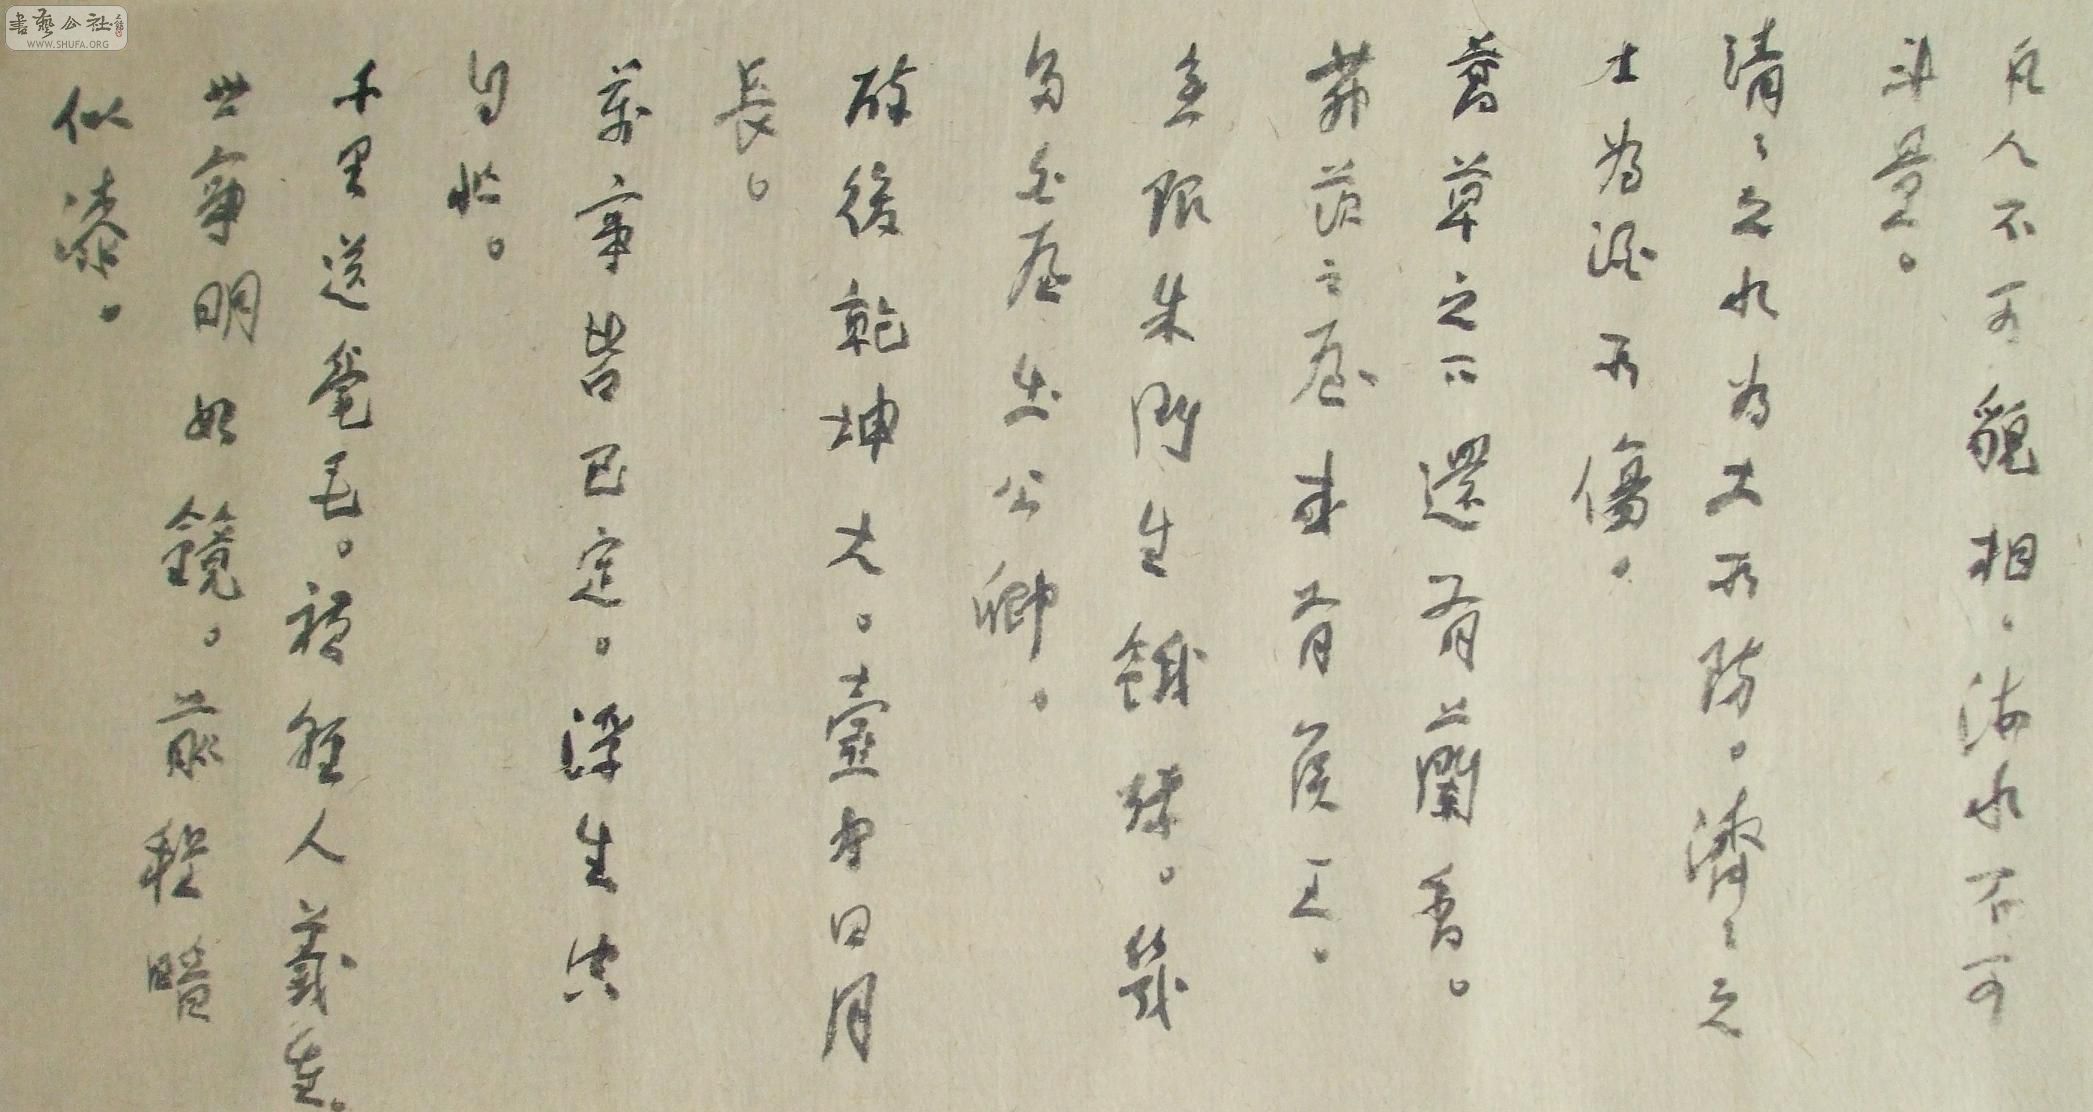 凡人不可貌相。海水不可
斗量。
清〻之水为土所防。濟〻之
士為酒所傷。
蒿草之下還有蘭香。
茅茨之屋或有侯王。
無限朱門生餓殍。幾
多白屋出公卿。
醉後乾坤大。壺中日月
長。
萬事皆已定。浮生空
自忙。
千里送毫毛。禮輕人義重。
世事明如鏡。前程暗
似漆。
書藝公社
WWW.SHUFA.ORG